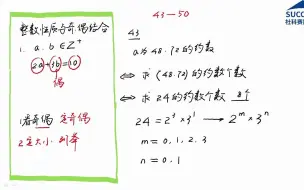 整数性质与奇偶结合
1. a、b ∈ Z⁺
2a + 3b = 10
偶
1看奇偶 定奇偶
2定大小 列举
43—50
43
a为48.72的约数
⇔ 求(48.72)的约数
⇔ 求24的约数个数 8个
24 = 2³ × 3¹ → 2ᵐ × 3ⁿ
m = 0、1、2、3
n = 0、1
SUCC
社科赛